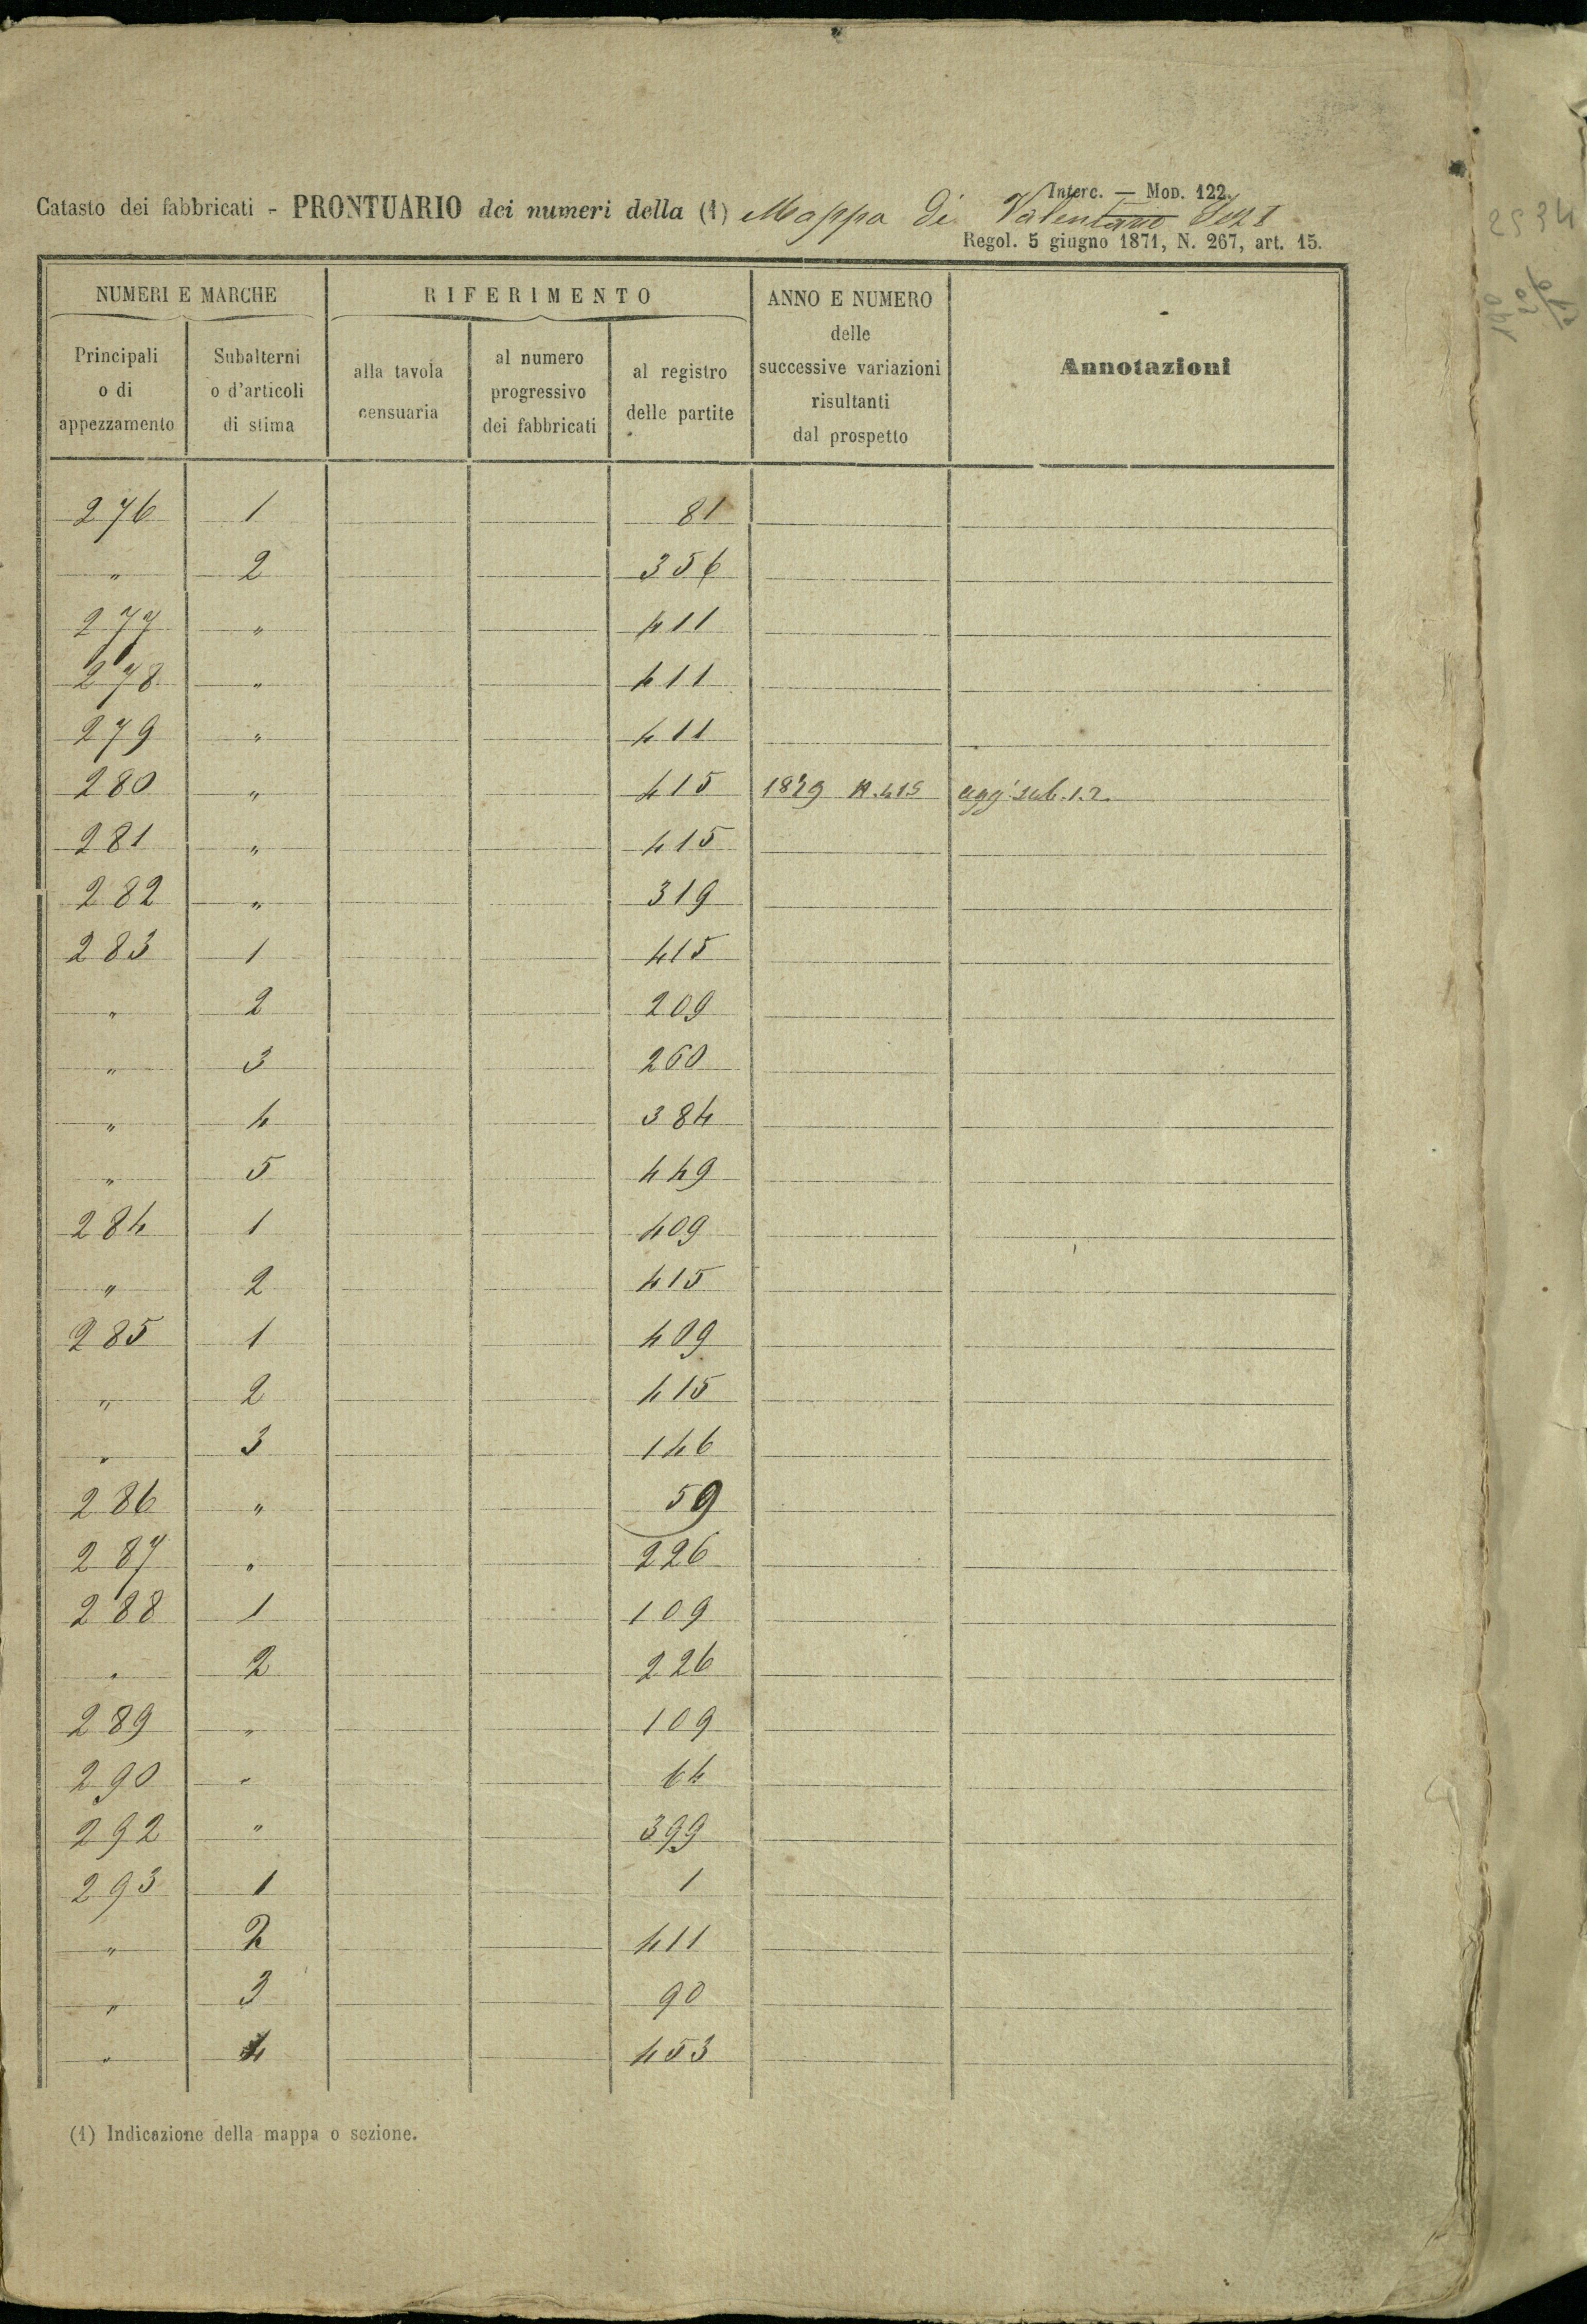 Interc. — Mod. 122.
Catasto dei fabbricati - PRONTUARIO dei numeri della (1) Mappa di Valentano Sez I
Regol. 5 giugno 1871, N. 267, art. 15.
NUMERI E MARCHE RIFERIMENTO ANNO E NUMERO delle successive variazioni risultanti dal prospetto Annotazioni
Principali o di appezzamento Subalterni o d'articoli di stima alla tavola censuaria al numero progressivo dei fabbricati al registro delle partite
276 1 81
" 2 356
277 " 411
278 " 411
279 " 411
280 " 415 1879 N.415 agg. sub. 1.2.
281 " 415
282 " 319
283 1 415
" 2 209
" 3 260
" 4 384
" 5 449
284 1 409
" 2 415
285 1 409
" 2 415
" 3 146
286 " 59
287 " 226
288 1 109
" 2 226
289 " 109
290 " 64
292 " 399
293 1 1
" 2 411
" 3 90
" 4 453
(1) Indicazione della mappa o sezione.
2534